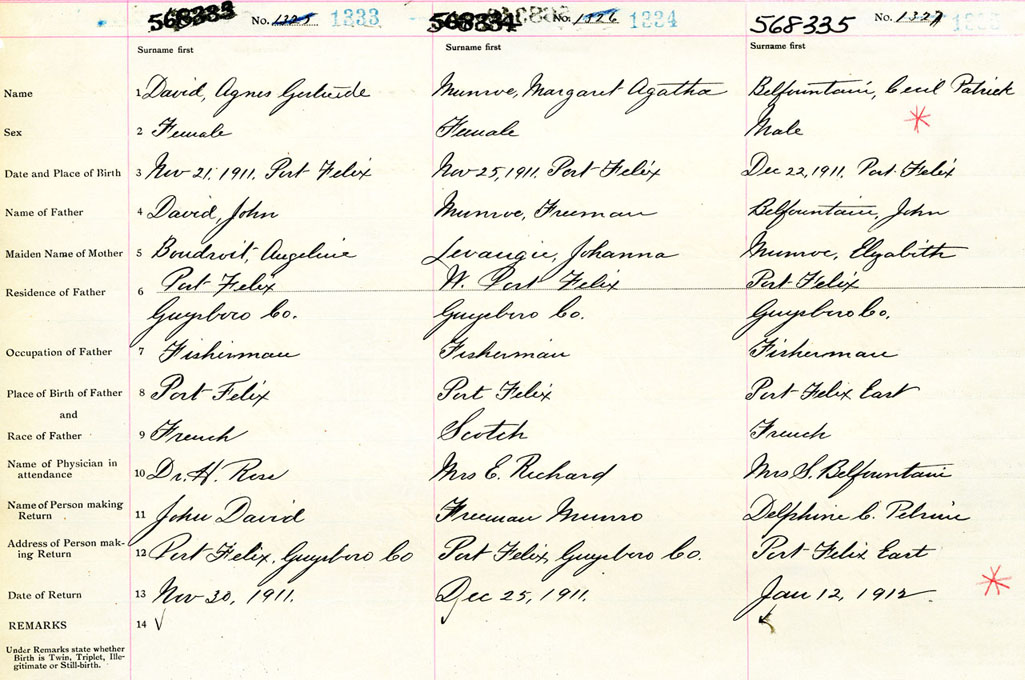 568333 No. 1325 1333 568334 No. 1326 1334 568335 No. 1327 1335
Surname first Surname first Surname first
Name 1 David, Agnes Gertrude Munroe, Margaret Agatha Belfountain, Cecil Patrick
Sex 2 Female Female Male
Date and Place of Birth 3 Nov 21, 1911. Port Felix Nov 25, 1911. Port Felix Dec 22, 1911. Port Felix
Name of Father 4 David, John Munroe, Freeman Belfountain, John
Maiden Name of Mother 5 Boudroit, Angeline Levangie, Johanna Munroe, Elyabith
Residence of Father 6 Port Felix W. Port Felix Port Felix
Guysboro Co. Guysboro Co. Guysboro Co.
Occupation of Father 7 Fisherman Fisherman Fisherman
Place of Birth of Father 8 Port Felix Port Felix Port Felix East
and
Race of Father 9 French Scotch French
Name of Physician in
attendance 10 Dr. H. Rose Mrs E. Richard Mrs S. Belfountain
Name of Person making
Return 11 John David Freeman Munro Delphine C. Pelrine
Address of Person mak-
ing Return 12 Port Felix, Guysboro Co Port Felix, Guysboro Co. Port Felix East
Date of Return 13 Nov 30, 1911. Dec 25, 1911. Jan 12, 1912.
REMARKS 14
Under Remarks state whether
Birth is Twin, Triplet, Ille-
gitimate or Still-birth.